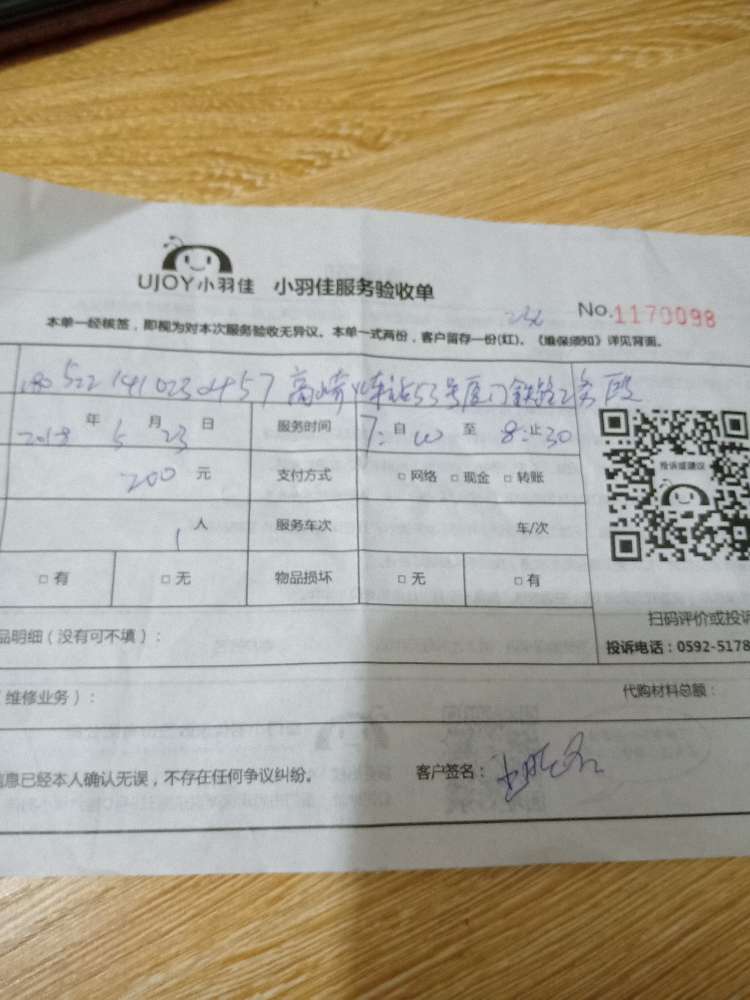 UJOY小羽佳 小羽佳服务验收单
No.1170098
本单一经核签，即视为对本次服务验收无异议。本单一式两份，客户留存一份(红)。《维保须知》详见背面。
180522141023 高崎火车站53号厦门铁路 段
2018 年 5 月 23 日 服务时间 7: 自 00 至 8: 止 30
200 元 支付方式 □ 网络 □ 现金 □ 转账
投诉或建议
1 人 服务车次 车/次
□ 有 □ 无 物品损坏 □ 无 □ 有
扫码评价或投诉
品明细（没有可不填）：
投诉电话：0592-5178
维修业务）： 代购材料总额：
信息已经本人确认无误，不存在任何争议纠纷。 客户签名：